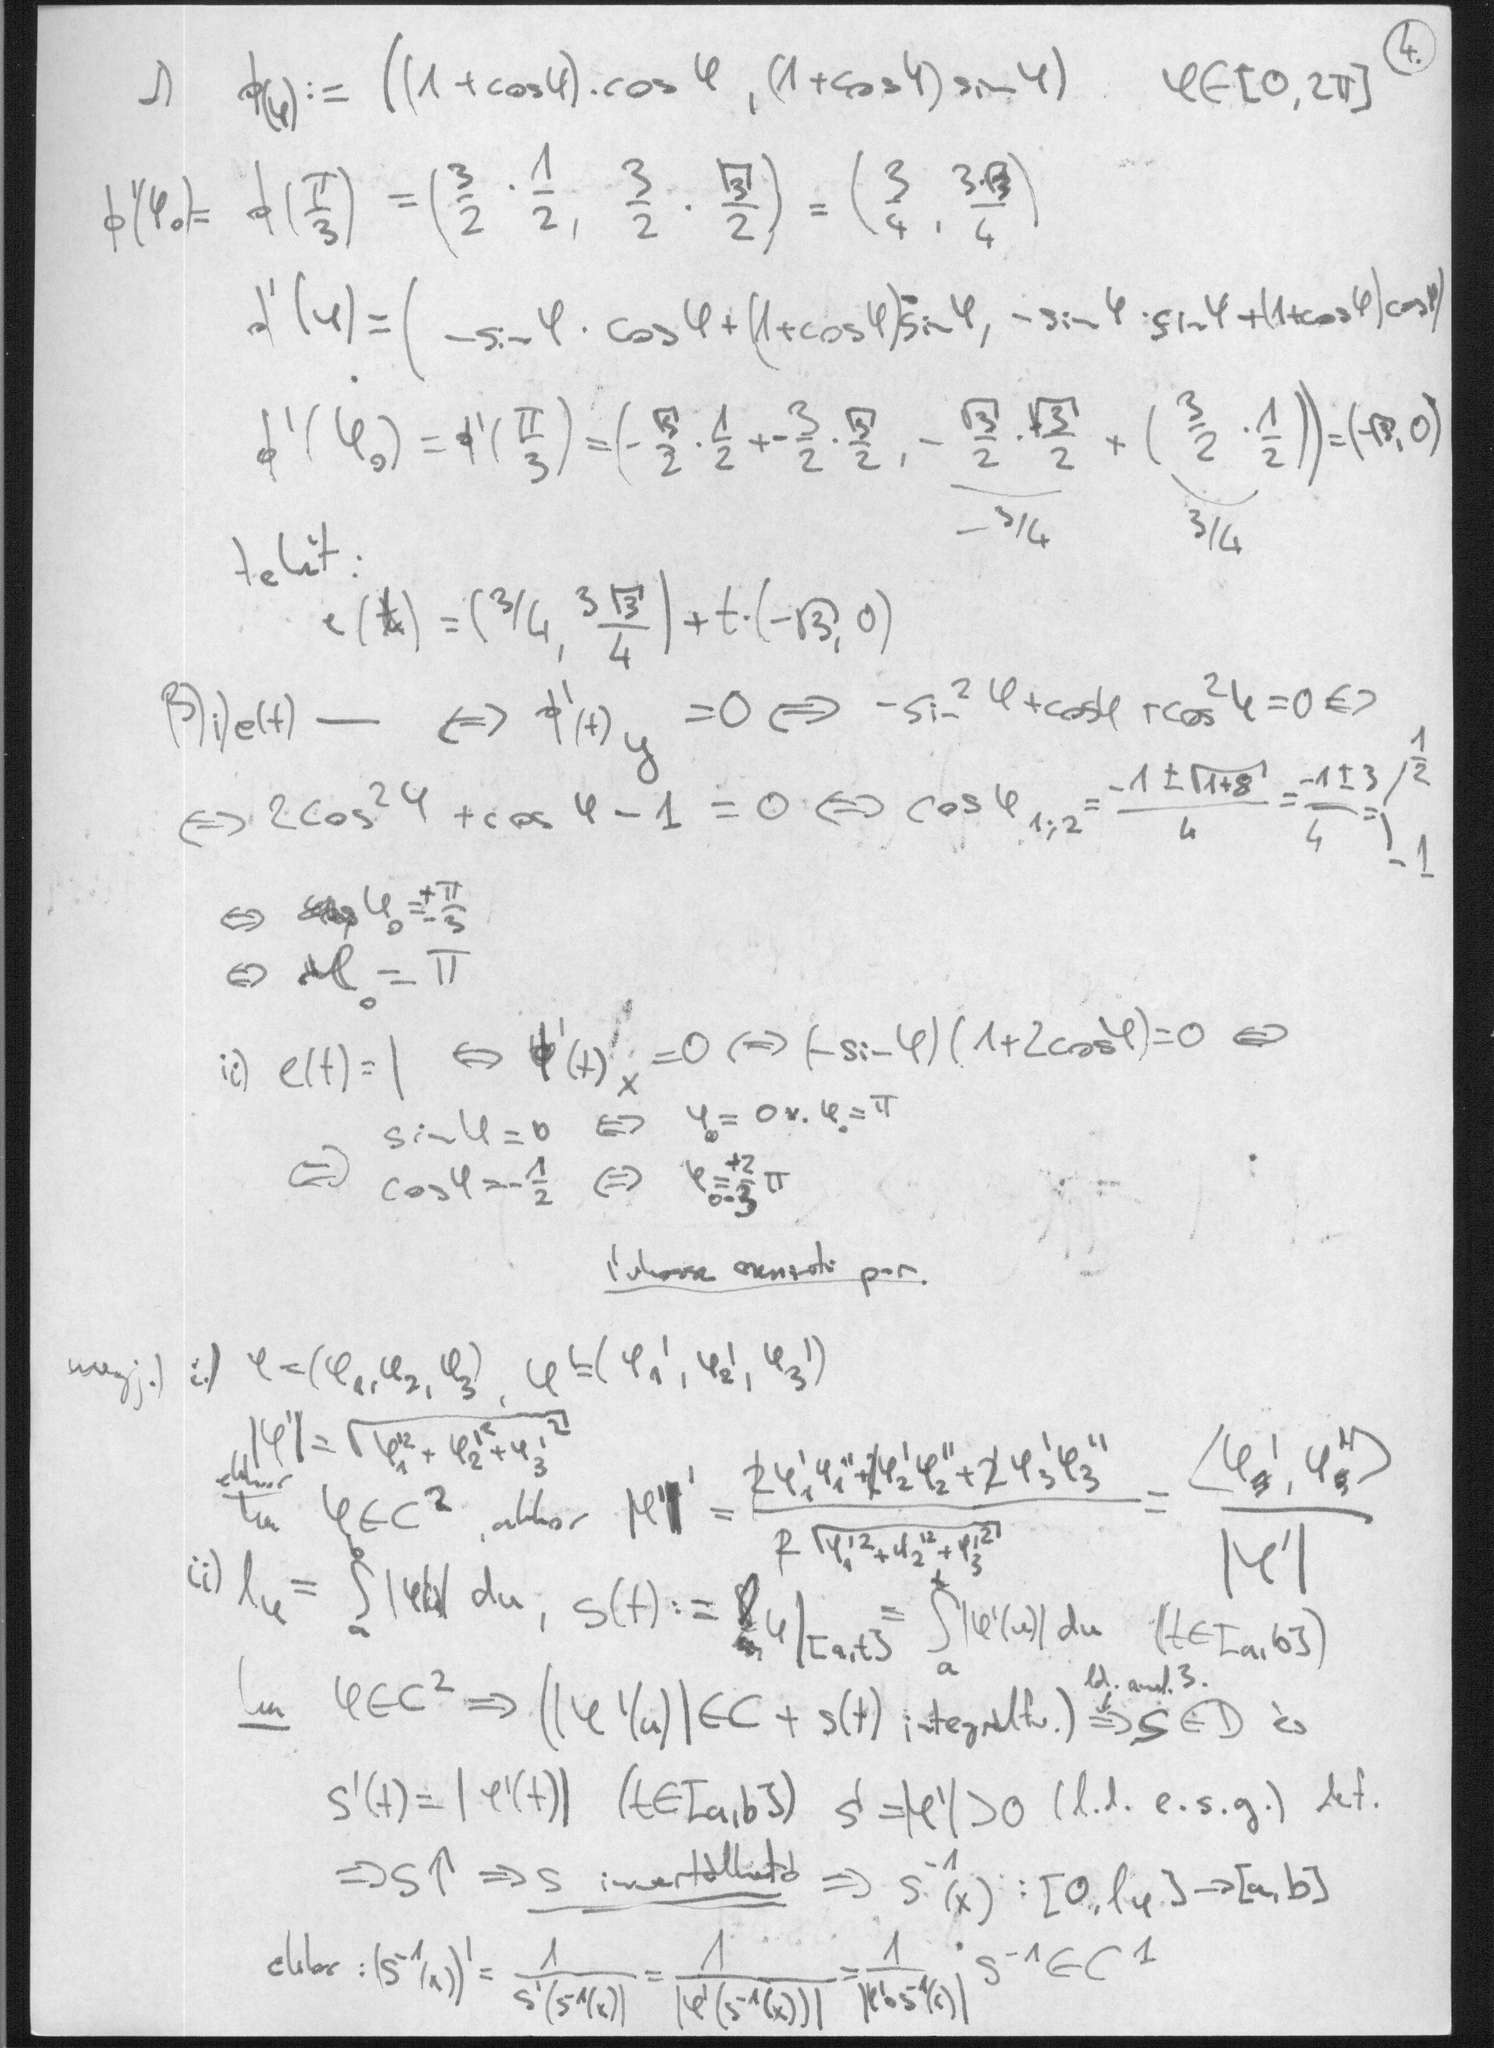 4.
ϕ(φ) := ((1+cosφ)·cosφ, (1+cosφ) sinφ) φ∈[0,2π]
ϕ(φ₀)= ϕ(π/3) = (3/2 · 1/2, 3/2 · √3/2) = (3/4, 3·√3/4)
ϕ'(φ) = (-sinφ · cosφ + (1+cosφ)-sinφ, -sinφ · sinφ + (1+cosφ) cosφ)
ϕ'(φ₀) = ϕ'(π/3) = (-√3/2 · 1/2 + -3/2 · √3/2, -√3/2 · √3/2 + (3/2 · 1/2)) = (-√3, 0)
-3/4 3/4
tehát:
e(t) = (3/4, 3√3/4) + t·(-√3, 0)
β) i) e(t) — ⇔ ϕ'(t)y = 0 ⇔ -sin²φ + cosφ + cos²φ = 0 ⇔
⇔ 2cos²φ + cosφ - 1 = 0 ⇔ cosφ1,2 = (-1±√(1+8))/4 = (-1±3)/4 = 1/2 -1
⇔ φ₀ = ±π/3
⇔ φ₀ = π
ii) e(t) = | ⇔ ϕ'(t)x = 0 ⇔ (-sinφ)(1+2cosφ) = 0 ⇔
sinφ = 0 ⇔ φ₀ = 0 v. φ₀ = π
⇔ cosφ = -1/2 ⇔ φ₀ = ±2/3 π
par.
megj.) i.) φ = (φ1, φ2, φ3), φ' = (φ1', φ2', φ3')
|φ'| = √(φ1'² + φ2'² + φ3'²)
ekkor
ha φ∈C², akkor |φ'|' = (2φ1'φ1'' + 2φ2'φ2'' + 2φ3'φ3'') / (2√(φ1'² + φ2'² + φ3'²)) = ⟨φ', φ''⟩ / |φ'|
ii) lφ = ∫ₐᵇ |φ'(u)| du, s(t) := lφ|[a,t] = ∫ₐᵗ |φ'(u)| du (t∈[a,b])
ld. anal. 3.
ha φ∈C² ⇒ (|φ'(u)| ∈ C + s(t) integrálfv.) ⇒ s∈D és
s'(t) = |φ'(t)| (t∈[a,b]) s' = |φ'| > 0 (l.d. e.s.g.) def.
⇒ s↑ ⇒ s invertálható ⇒ s⁻¹(x) : [0, lφ] → [a,b]
ekkor : (s⁻¹(x))' = 1/s'(s⁻¹(x)) = 1/|φ'(s⁻¹(x))| = 1/|φ'∘s⁻¹(x)| , s⁻¹∈C¹